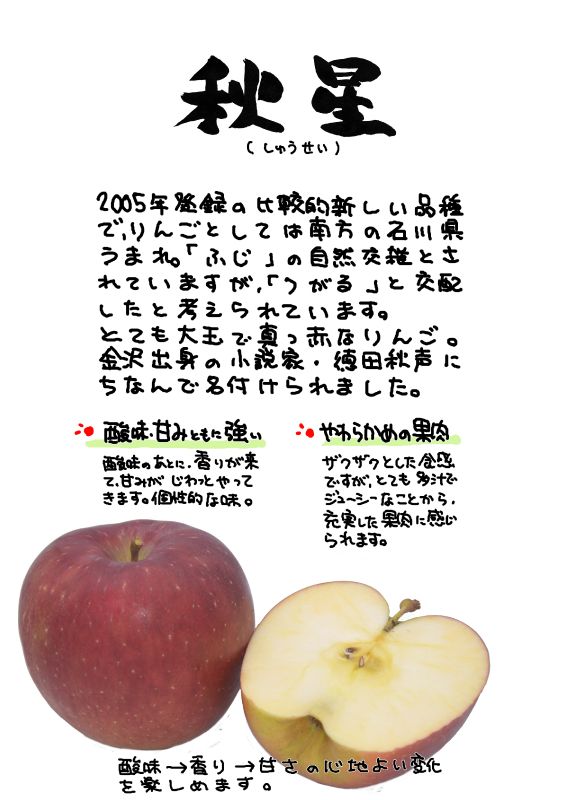 秋星
(しゅうせい)
2005年登録の比較的新しい品種
で、りんごとしては南方の石川県
うまれ。「ふじ」の自然交雑とさ
れていますが、「つがる」と交配
したと考えられています。
とても大玉で真っ赤なりんご。
金沢出身の小説家・徳田秋声に
ちなんで名付けられました。
酸味・甘みともに強い
酸味のあとに、香りが来
て、甘みがじわっとやって
きます。個性的な味。
やわらかめの果肉
ザクザクとした食感
ですが、とても多汁で
ジューシーなことから、
充実した果肉に感じ
られます。
酸味→香り→甘さの心地よい変化
を楽しめます。